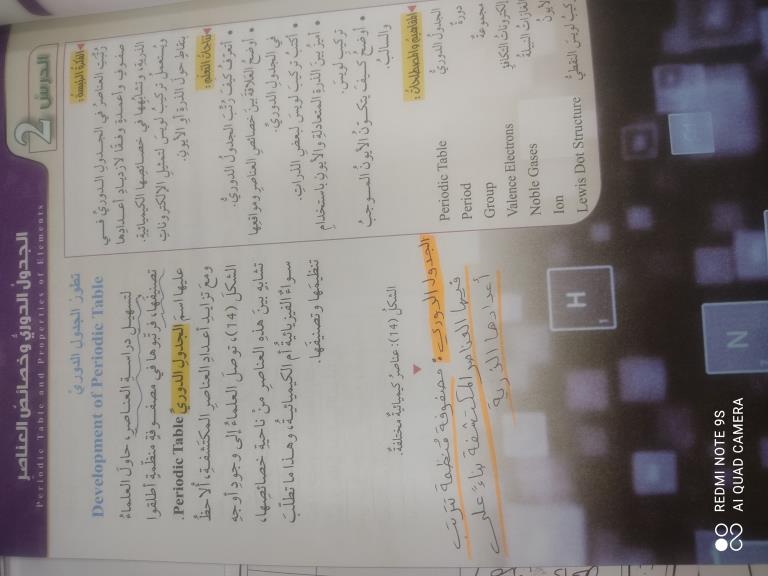 الجدول الدوري وخصائص العناصر
Periodic Table and Properties of Elements
الدرس 2
الفكرة الرئيسة:
رُتِّبَتِ العناصرُ في الجدولِ الدوريِّ في
صفوفٍ وأعمدةٍ وفقًا لازديادِ أعدادِها
الذريةِ، وتشابُهِها في خصائصِها الكيميائيةِ.
ويُستعملُ تركيبُ لويس لتمثيلِ الإلكتروناتِ
بنقاطٍ حولَ الذرةِ أوِ الأيونِ.
نتاجات التعلم:
• أتعرّفُ كيفَ رُتِّبَ الجدولُ الدوريُّ.
• أوضحُ العلاقةَ بينَ خصائصِ العناصرِ ومواقعِها
في الجدولِ الدوريِّ.
• أكتبُ تركيبَ لويس لبعضِ الذراتِ.
• أميزُ بينَ الذرةِ المتعادلةِ والأيونِ باستخدامِ
تركيبِ لويس.
• أوضحُ كيفَ يتكوّنُ الأيونُ الموجبُ
والسالبُ.
المفاهيم والمصطلحات:
الجدولُ الدوريُّ Periodic Table
دورةٌ Period
مجموعةٌ Group
إلكتروناتُ التكافؤِ Valence Electrons
الغازاتُ النبيلةُ Noble Gases
أيونٌ Ion
تركيبُ لويس النقطيُّ Lewis Dot Structure
تطورُ الجدولِ الدوريِّ
Development of Periodic Table
لتسهيلِ دراسةِ العناصرِ، حاولَ العلماءُ
تصنيفَها، فرتّبوها في مصفوفةٍ منظمةٍ أطلقوا
عليها اسمَ الجدولِ الدوريِّ Periodic Table.
ومعَ تزايدِ أعدادِ العناصرِ المكتشفةِ، ألاحظُ
الشكلَ (14)، توصلَ العلماءُ إلى وجودِ أوجهِ
تشابهٍ بينَ هذهِ العناصرِ منْ ناحيةِ خصائصِها،
سواءٌ الفيزيائيةُ أمِ الكيميائيةُ، وهذا ما تطلّبَ
تنظيمَها وتصنيفَها.
الشكلُ (14): عناصرُ كيميائيةٌ مختلفةٌ.
الجدول الدوري: مصفوفة منظمة ترتب
فيها العناصر المكتشفة بناءً على
أعدادها الذرية
H
1
N
REDMI NOTE 9S
AI QUAD CAMERA